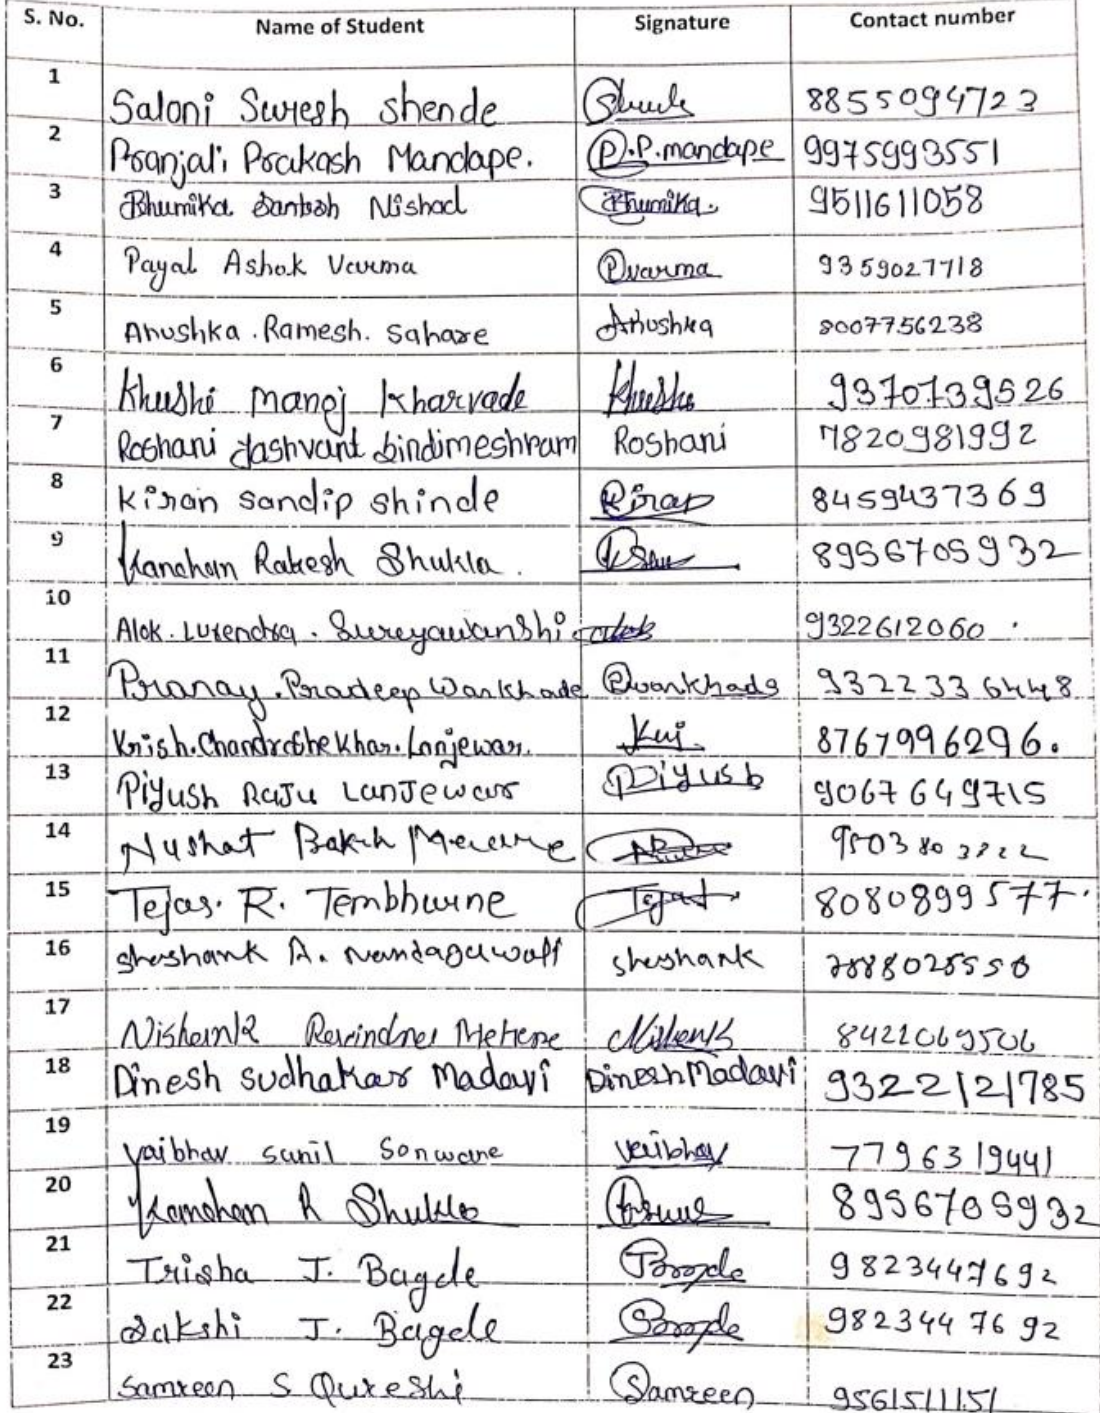 S. No. Name of Student Signature Contact number
1 Saloni Suresh Shende 8855094723
2 Pranjali Prakash Mandape. P.P.mandape 9975993551
3 Bhumika Santosh Nishad Bhumika. 9511611058
4 Payal Ashok Varma Pvarma 9359027718
5 Anushka . Ramesh. Sahare Anushka 8007756238
6 Khushi Manoj Kharvade Khushi 9370739526
7 Roshani Jashvant bindimeshram Roshani 7820981992
8 Kiran Sandip Shinde Kiran 8459437369
9 Kancham Rakesh Shukla . 8956705932
10 Alok. Lurendra . Sureyawanshi Alok 9322612060 .
11 Pranay . Pradeep Wankhade Pwankhade 9322336448
12 Krish.Chandrashekhar.Lanjewar. 8767996296.
13 Piyush Raju Lanjewar Piyush 9067649715
14 Nushat
15 Tejas. R. Tembhurne Tejas 8080899577.
16 Shashank A. Shashank
17 8422069506
18 Dinesh Sudhakar Madavi Dinesh Madavi 9322121785
19 Vaibhav Sunil Sonwane Vaibhav 7796319441
20 Kancham R Shukla 8956705932
21 Trisha J. Bagde 9823447692
22 Sakshi J. Bagde 9823447692
23 Samreen S Qureshi Samreen 9561511151